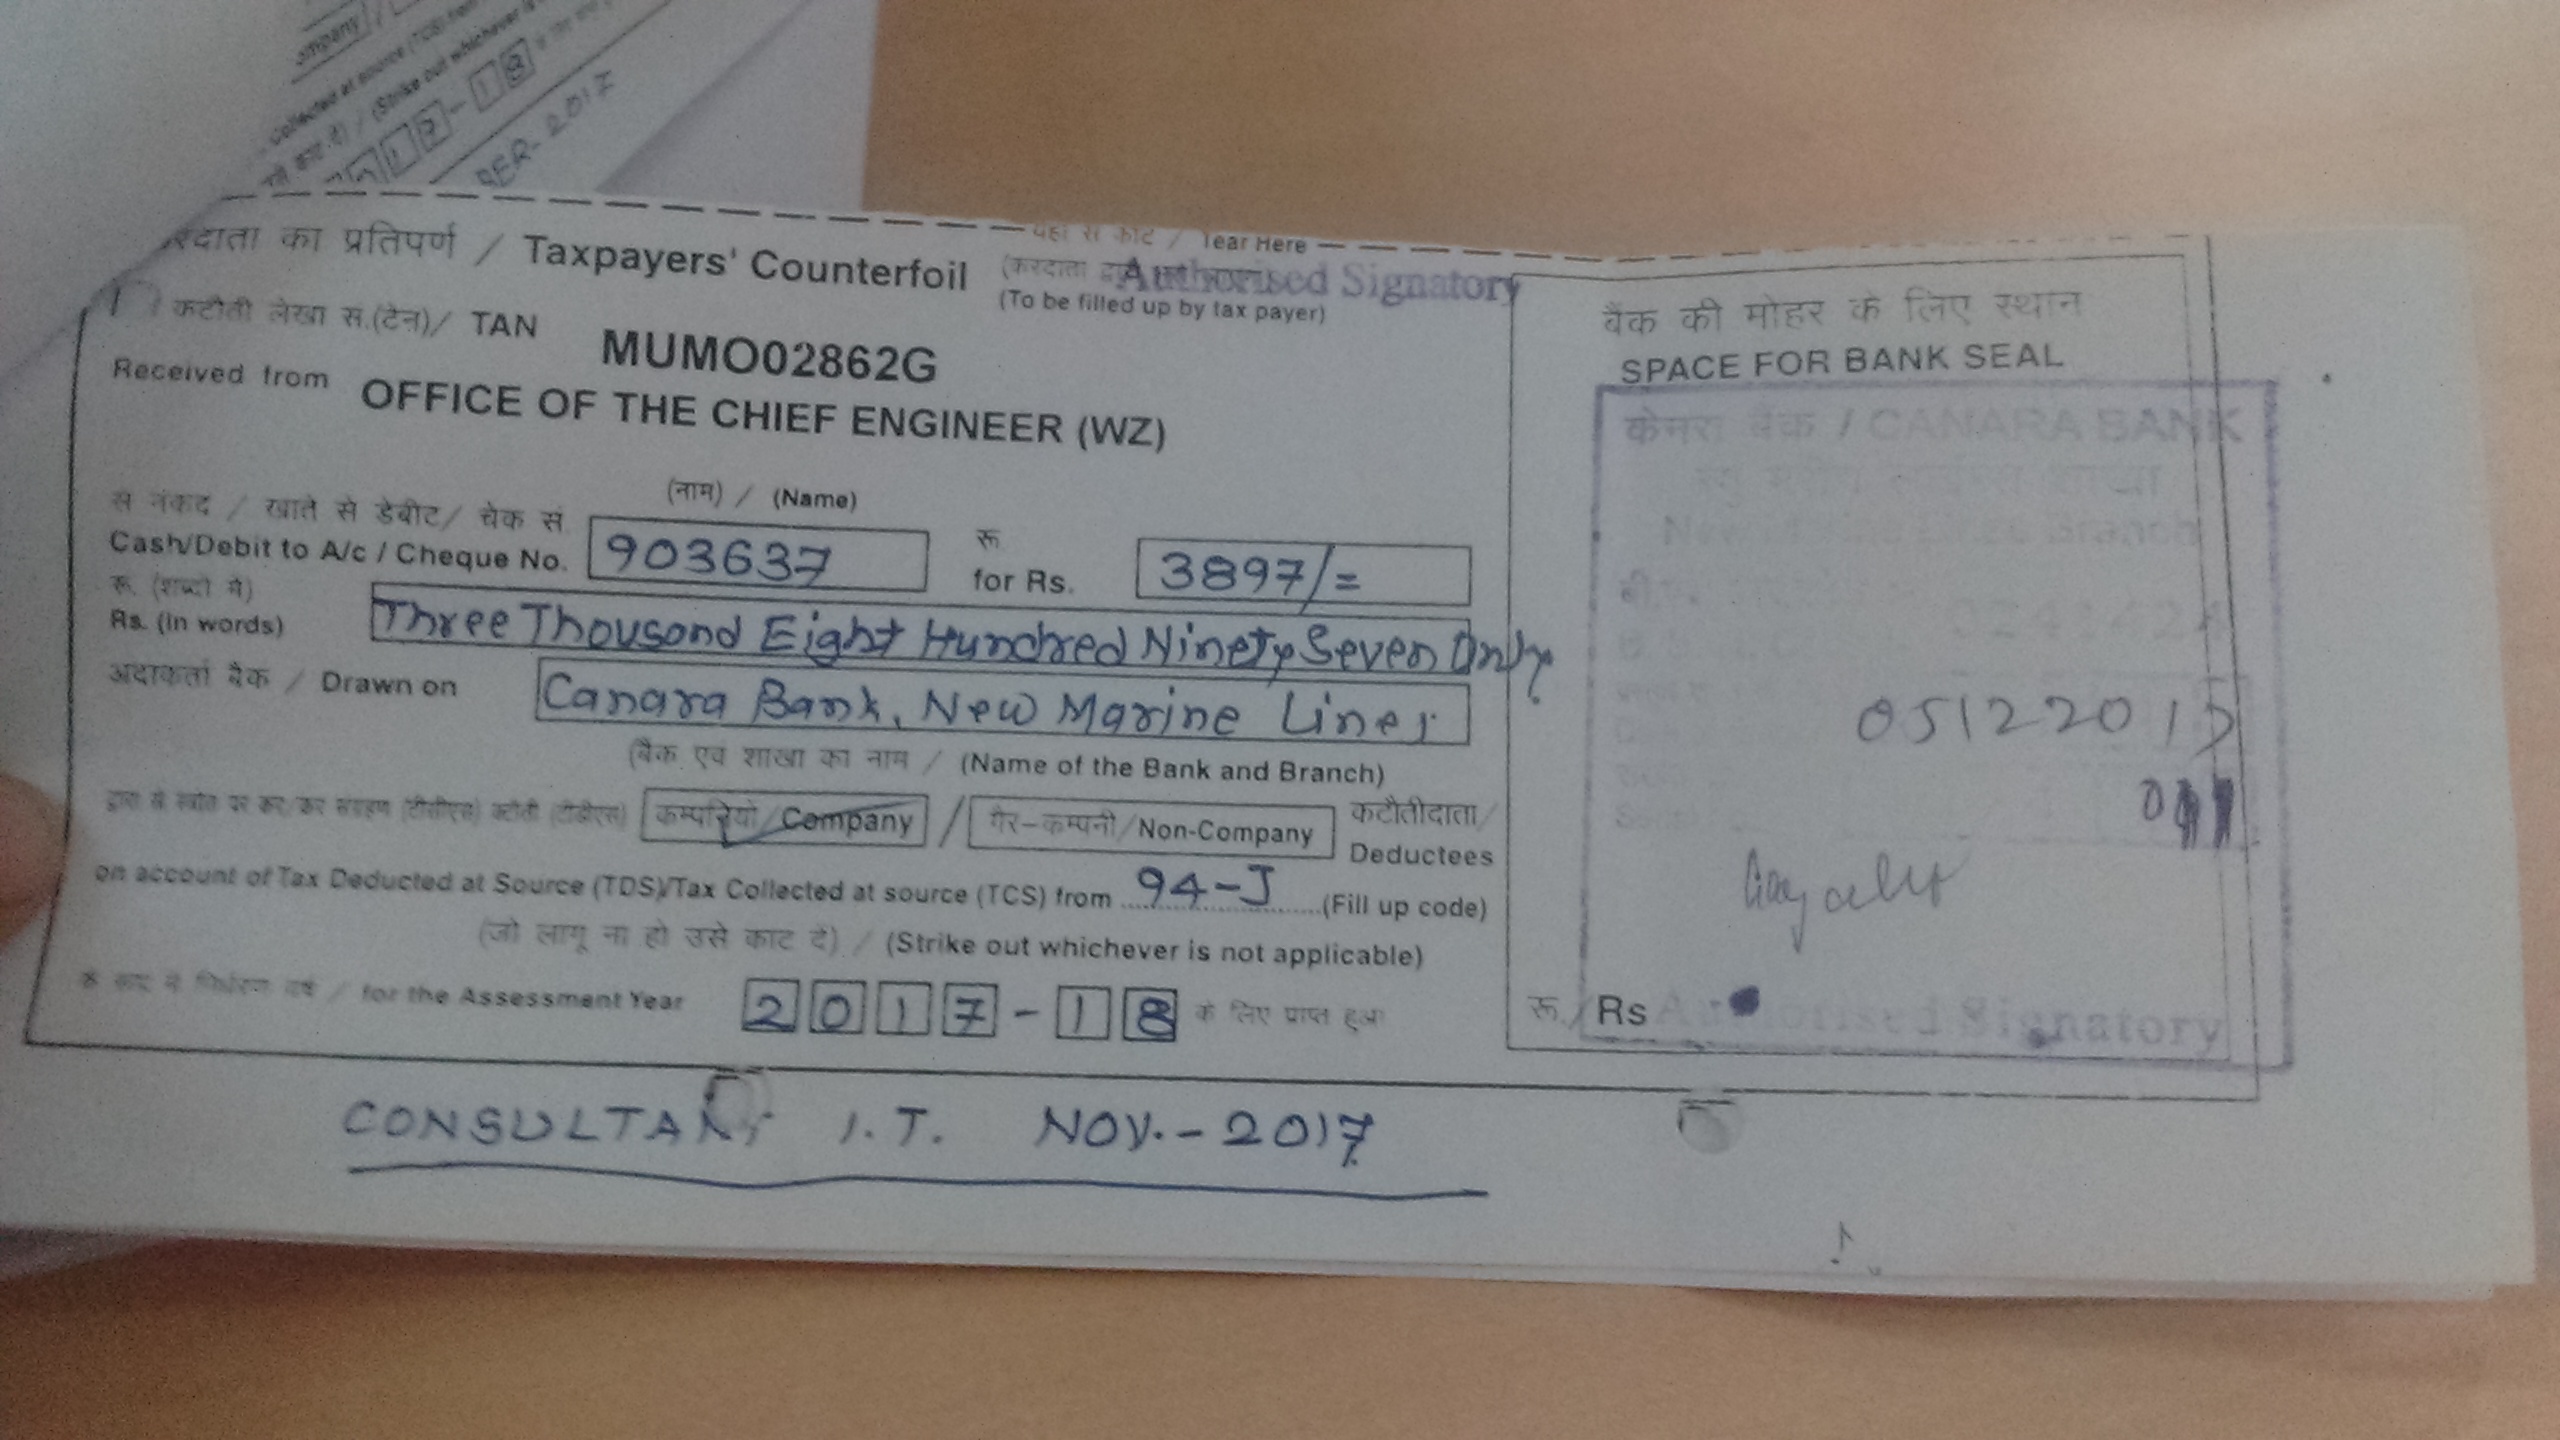 Collected at source (TCS) from
(Strike out whichever is
17-18
BER-2017
यहां से काटे / Tear Here
करदाता का प्रतिपर्ण / Taxpayers' Counterfoil (करदाता द्वारा
Authorised Signatory
(To be filled up by tax payer)
कटौती लेखा स.(टेन)/ TAN MUMO02862G
Received from OFFICE OF THE CHIEF ENGINEER (WZ)
(नाम) / (Name)
से नकद / खाते से डेबीट/ चेक सं.
Cash/Debit to A/c / Cheque No. 903637
रू
for Rs. 3897/=
रू. (शब्दो में)
Rs. (in words) Three Thousond Eight Hundred Ninety Seven Only.
अदाकर्ता बैंक / Drawn on Canara Bank, New Marine Lines.
(बैंक एवं शाखा का नाम / (Name of the Bank and Branch)
द्वारा से स्त्रोत पर कर/कर संग्रहण (टीसीएस) कटौती (टीडीएस) कम्पनियो/Company / गैर-कम्पनी/Non-Company कटौतीदाता/
Deductees
on account of Tax Deducted at Source (TDS)/Tax Collected at source (TCS) from 94-J (Fill up code)
(जो लागू ना हो उसे काट दे) / (Strike out whichever is not applicable)
के रूप में निर्धारण वर्ष / for the Assessment Year 2017-18 के लिए प्राप्त हुआ
CONSULTANT I.T. NOV.-2017
बैंक की मोहर के लिए स्थान
SPACE FOR BANK SEAL
केनरा बैंक / CANARA BANK
Branch
0512201
रू./ Rs
Authorised Signatory